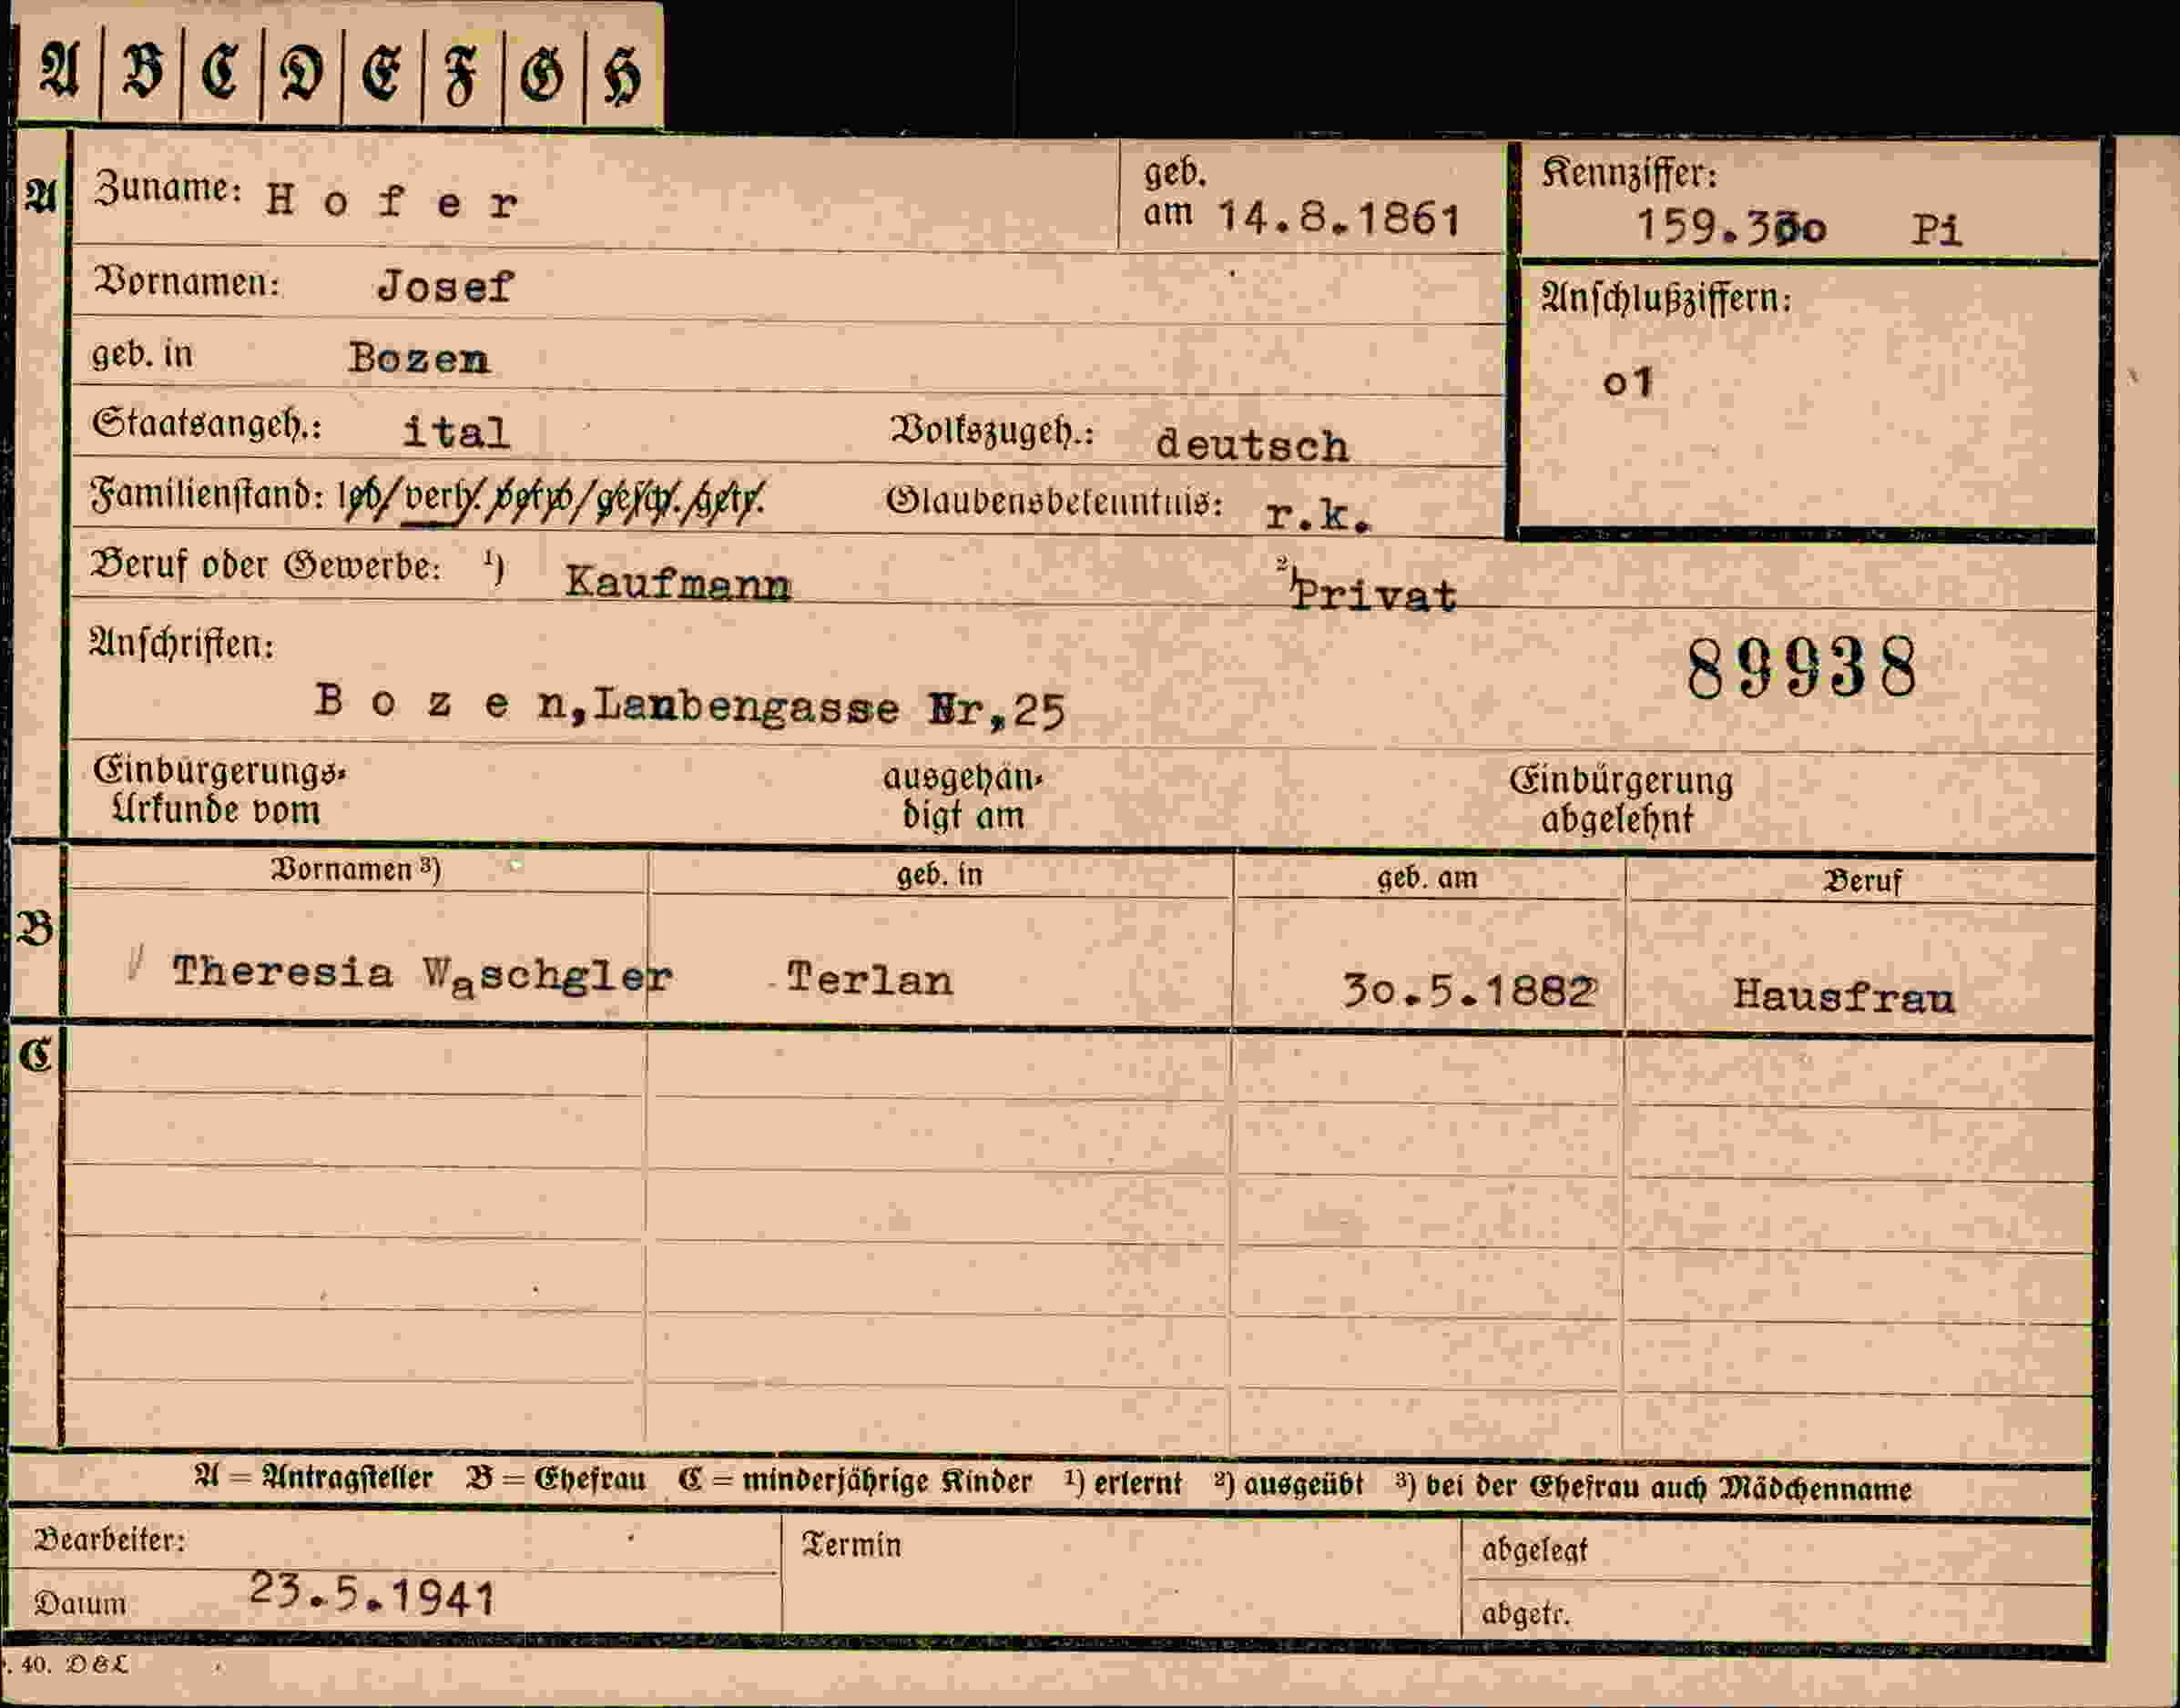 A | B | C | D | E | F | G | H
A Zuname: H o f e r geb. am 14.8.1861
Kennziffer: 159.330 Pi
Vornamen: Josef
Anschlußziffern: o1
geb. in Bozen
Staatsangeh.: ital Volkszugeh.: deutsch
Familienstand: led/verh./verw/gesch./getr. Glaubensbekenntnis: r.k.
Beruf oder Gewerbe: 1) Kaufmann 2) Privat
Anschriften:
89938
B o z e n, Laubengasse Nr,25
Einbürgerungs- ausgehän- Einbürgerung
Urkunde vom digt am abgelehnt
Vornamen 3) geb. in geb. am Beruf
B
Theresia Waschgler Terlan 3o.5.1882 Hausfrau
C
A = Antragsteller B = Ehefrau C = minderjährige Kinder 1) erlernt 2) ausgeübt 3) bei der Ehefrau auch Mädchenname
Bearbeiter: Termin abgelegt
Datum 23.5.1941 abgetr.
. 40. D&L